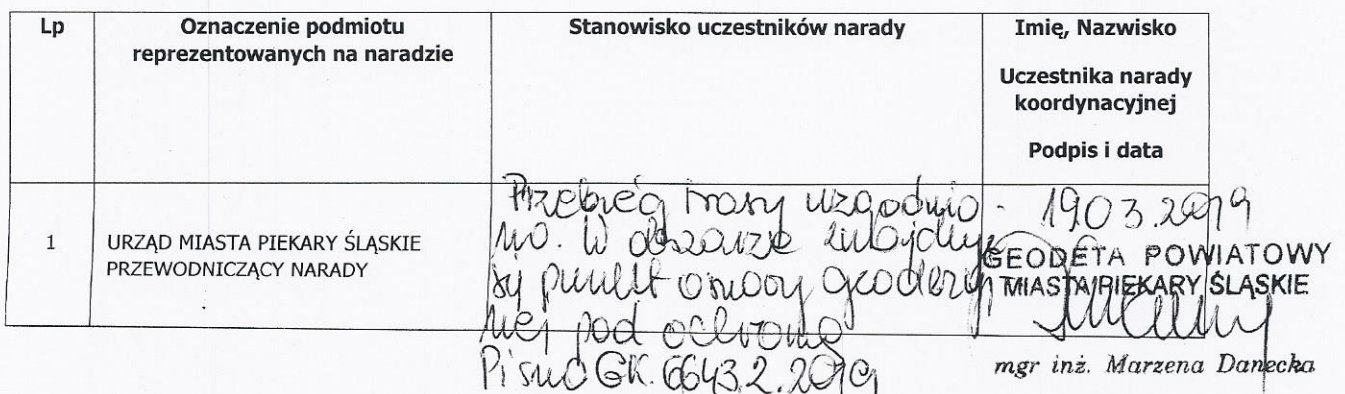 Lp
Oznaczenie podmiotu
reprezentowanych na naradzie
Stanowisko uczestników narady
Imię, Nazwisko
Uczestnika narady
koordynacyjnej
Podpis i data
1
URZĄD MIASTA PIEKARY ŚLĄSKIE
PRZEWODNICZĄCY NARADY
Przebieg trasy uzgodnio-
no. W obszarze znajduje
się punkt osnowy geodezyj
nej pod ochroną
Pismo GK.6643.2.2019
19.03.2019
GEODETA POWIATOWY
MIASTA PIEKARY ŚLĄSKIE
mgr inż. Marzena Danecka